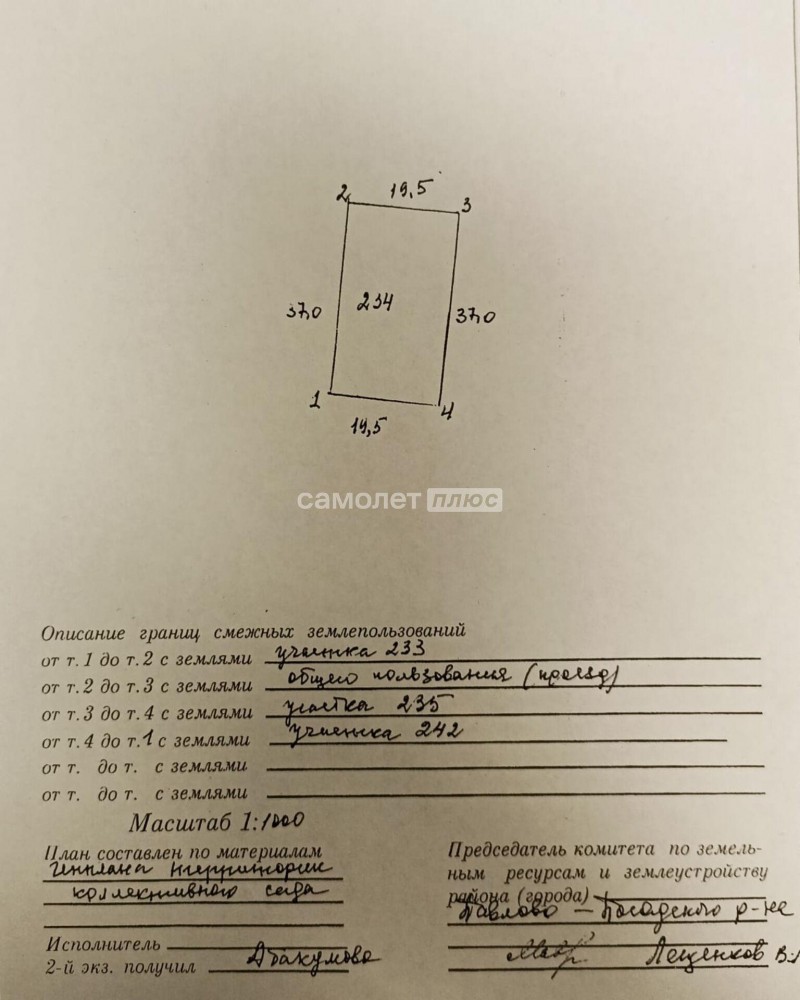 2 19,5 3
37,0 234 37,0
1 4
19,5
самолет плюс
Описание границ смежных землепользований
от т. 1 до т. 2 с землями участка 233
от т. 2 до т. 3 с землями общего пользования (проезд)
от т. 3 до т. 4 с землями участка 235
от т. 4 до т. 1 с землями участка 242
от т. до т. с землями
от т. до т. с землями
Масштаб 1:1000
План составлен по материалам
генплана территории
коллективного сада
Исполнитель
2-й экз. получил Абакумова
Председатель комитета по земель-
ным ресурсам и землеустройству
района (города)
Павлово-Посадского р-на
Лещенков В.